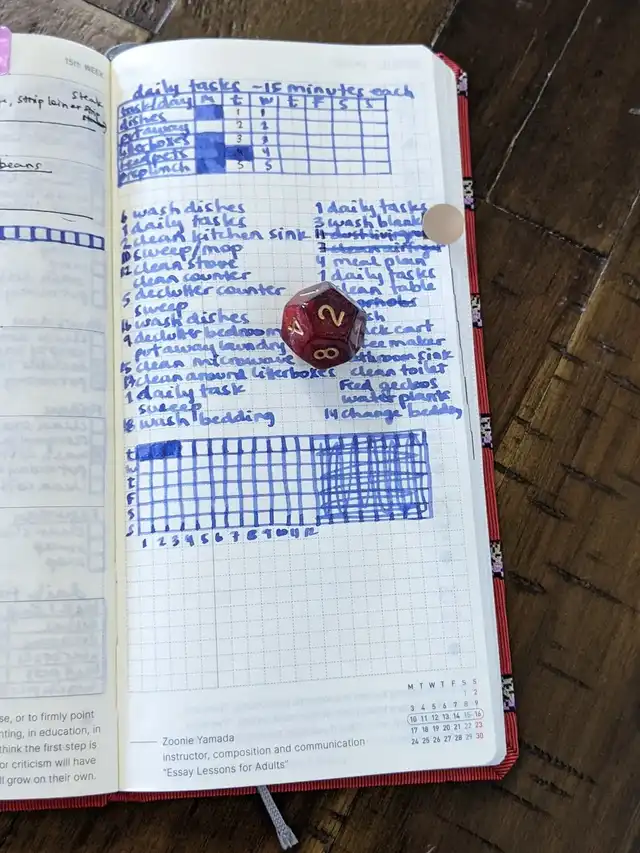 15th WEEK
steak
, strip loiner
beans
daily tasks - 15 minutes each
task/day M t W t F S S
dishes 1 1
put away 2 2
litterboxes 3 3
feed pets 4 4
prep lunch 5 5
6 wash dishes
1 daily tasks
2 clean kitchen sink
10 sweep/mop
12 clean stove
clean counter
5 declutter counter
sweep
16 wash dishes
9 declutter bedroom
put away laundry
15 clean microwave
13 clean around litterboxes
1 daily task
sweep
18 wash bedding
1 daily tasks
3 wash blank
11 dust living
7
4 meal plan
1 daily tasks
clean table
cart
maker
bathroom sink
clean toilet
Feed geckos
water plants
14 change bedding
2
8
4
t
W
t
F
S
S
1 2 3 4 5 6 7 8 9 10 11 12
M T W T F S S
1 2
3 4 5 6 7 8 9
10 11 12 13 14 15 16
17 18 19 20 21 22 23
24 25 26 27 28 29 30
Zoonie Yamada
instructor, composition and communication
"Essay Lessons for Adults"
se, or to firmly point
nting, in education, in
think the first step is
or criticism will have
ll grow on their own.